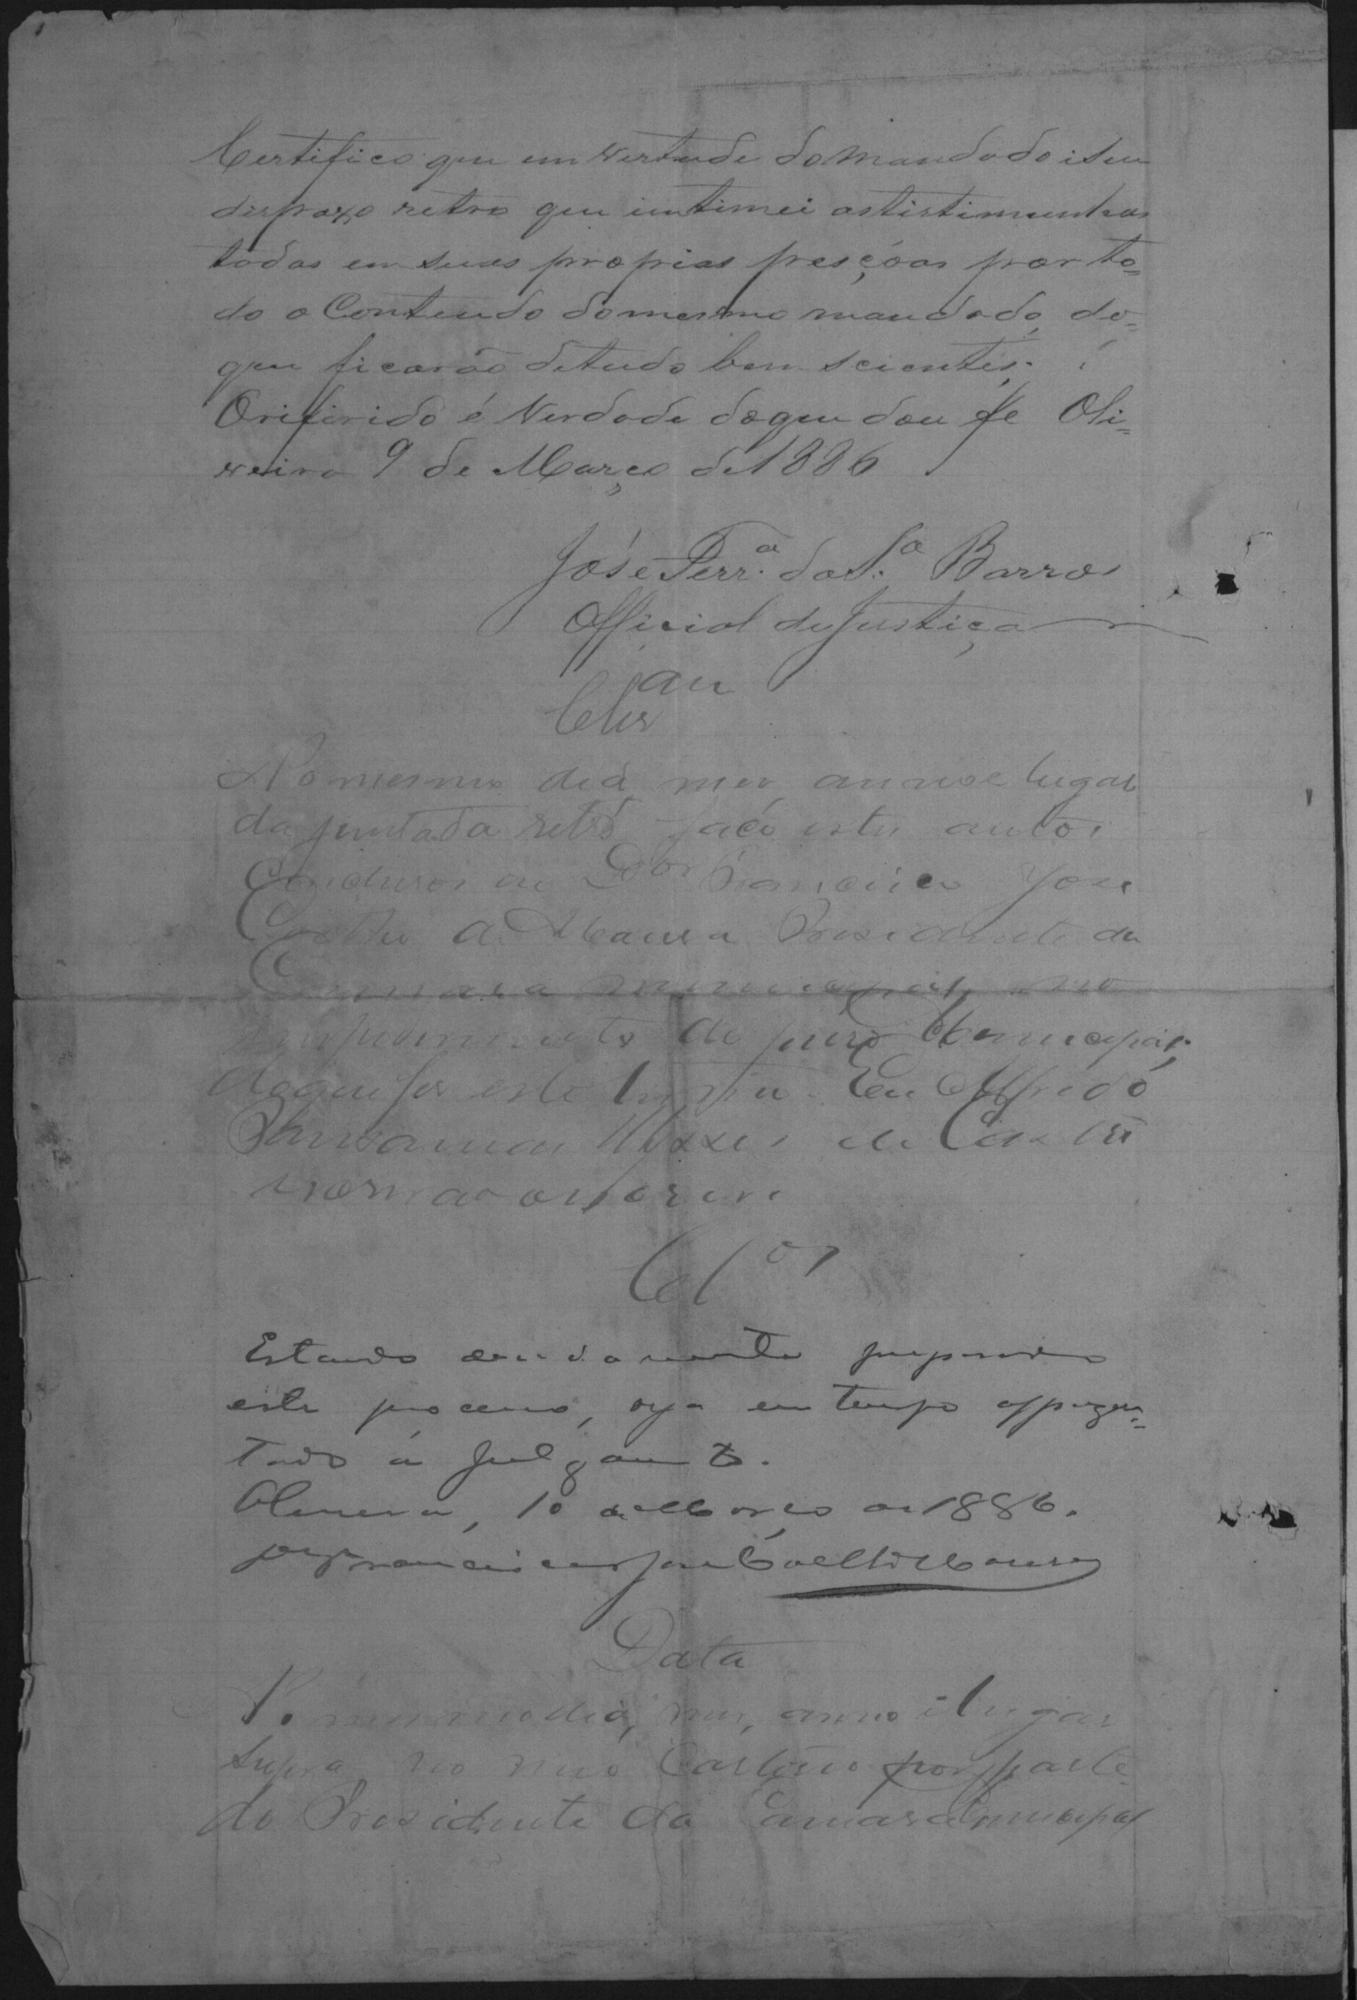 Certifico que em vertude do mandado e seu
despaxo retro que intimei as tistimunhas
todas em suas proprias pesçôas por to=
do o Contendo do mesmo mandado, do=
que ficarão de tudo bem scientes.
O rifirido é Verdade do que dou fe Oli=
veira 9 de Março de 1886
José Ferr.ª da S.ª Barros
Official de Justiça
Clsr
No mesmo dia, mes anno e lugar
da juntada retro faço estes autos
Conclusos ao Dor Francisco José
Coelho de Moura Presidente da
Camara municipal, no
impedimento do juiz Municipal,
do que fis este termo. Eu Alfredo
de Castro
escrivão o escrevi
Clos
Estando devidamente preparado
este processo, seja em tempo appresen=
tado a julgamto.
Oliveira, 10 de Março de 1886.
Francisco José Coelho de Moura
Data
No mesmo dia, mes, anno e lugar
supra no meu Cartorio por parte
do Presidente da Camara Municipal